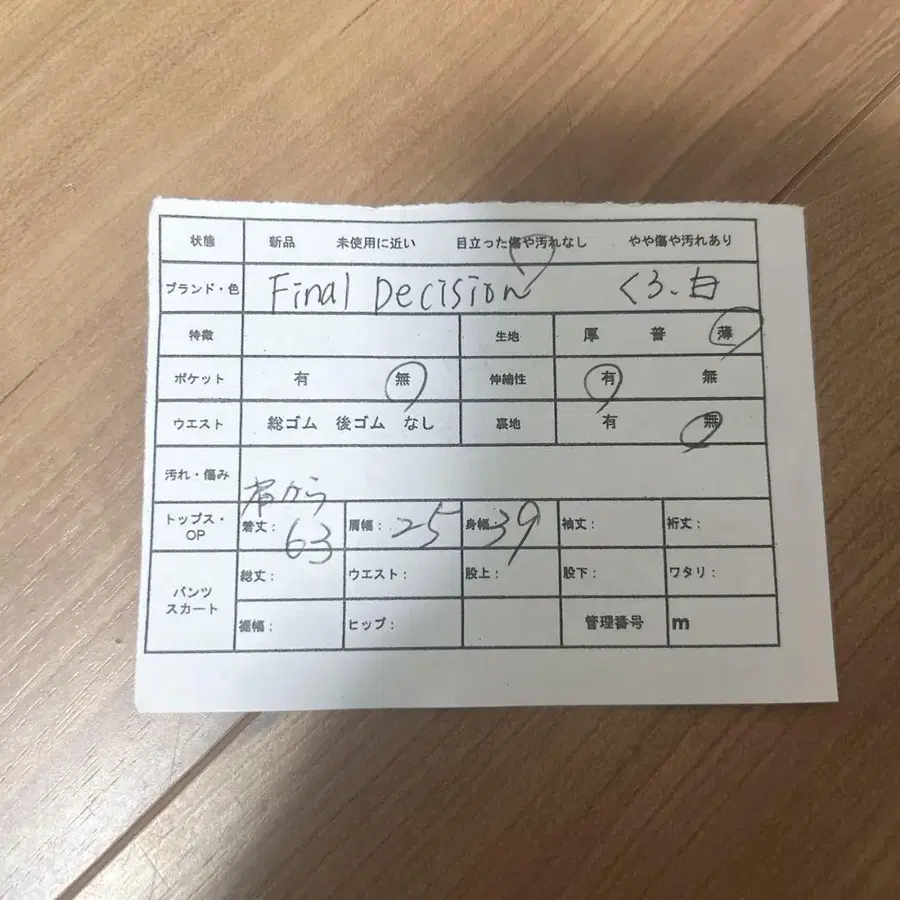 状態 新品 未使用に近い 目立った傷や汚れなし やや傷や汚れあり
ブランド・色 Final Decision くろ、白
特徴 生地 厚 普 薄
ポケット 有 無 伸縮性 有 無
ウエスト 総ゴム 後ゴム なし 裏地 有 無
汚れ・傷み
肩から
トップス・OP 着丈: 63 肩幅: 25 身幅: 39 袖丈: 裄丈:
パンツ スカート 総丈: ウエスト: 股上: 股下: ワタリ:
裾幅: ヒップ: 管理番号 m